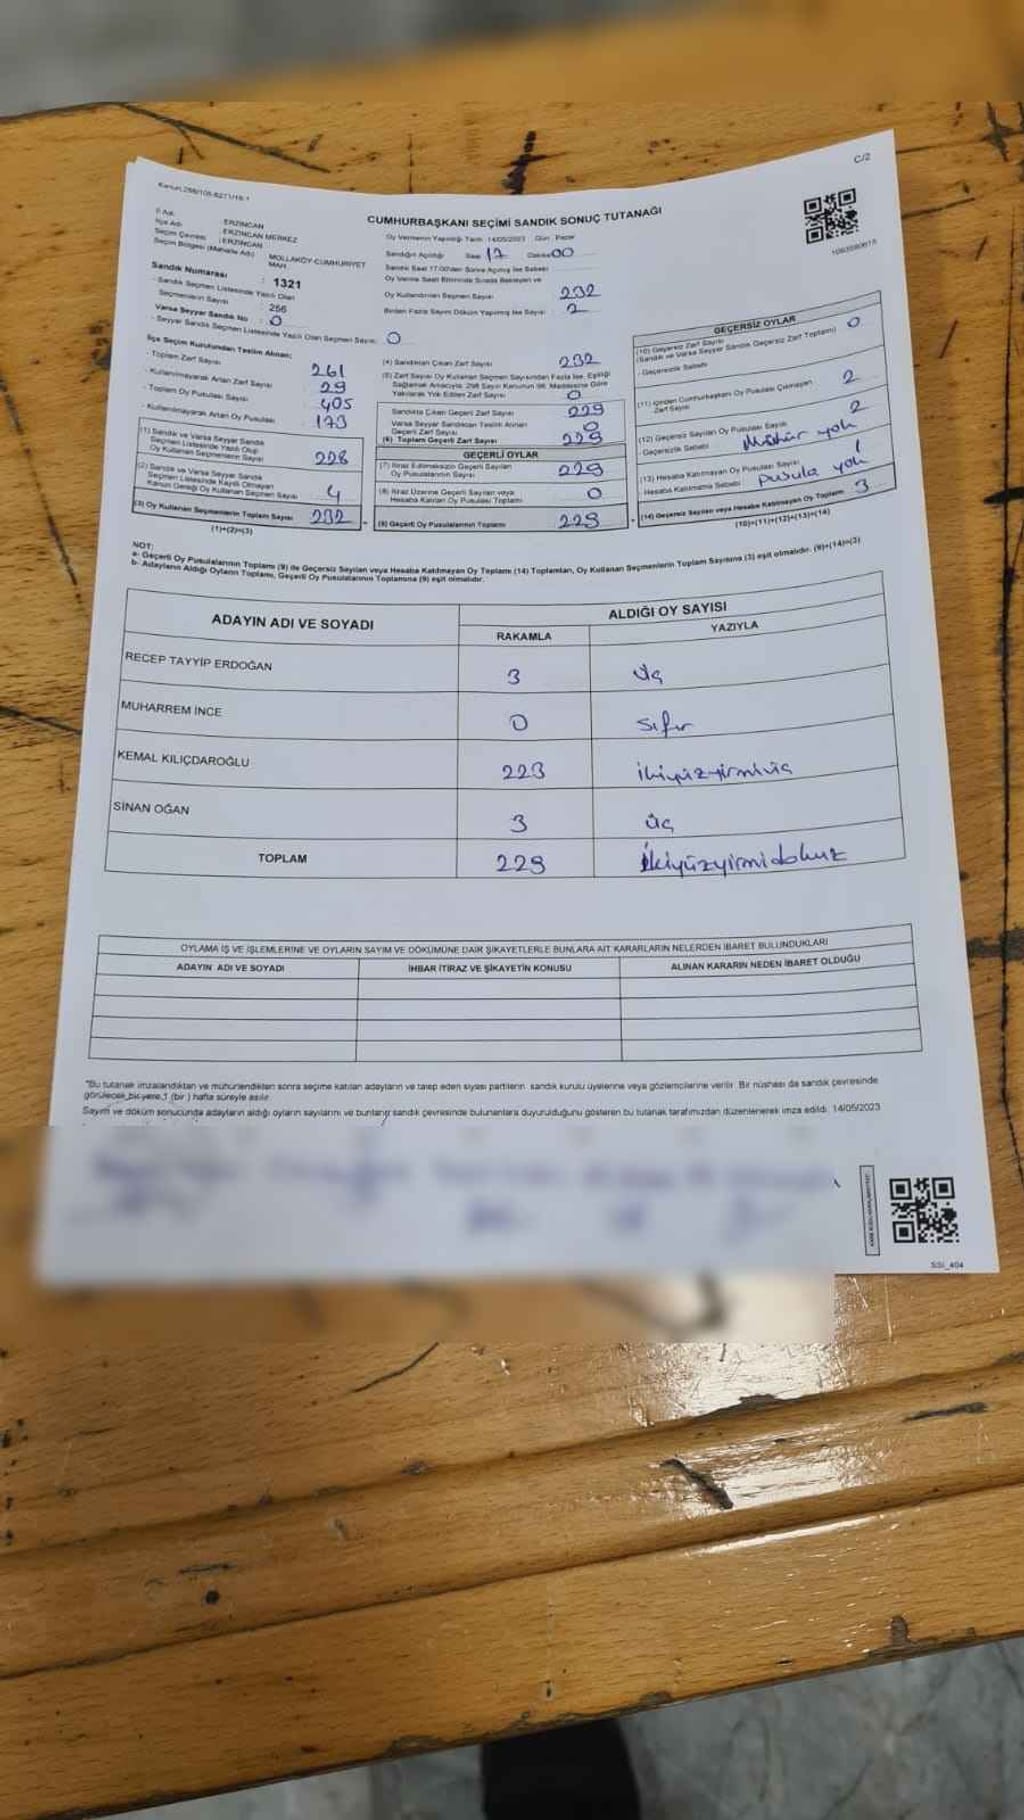 C/2
Kanun:298/105-6271/18-1
CUMHURBAŞKANI SEÇİMİ SANDIK SONUÇ TUTANAĞI
İl Adı : ERZİNCAN
İlçe Adı : ERZİNCAN MERKEZ
Seçim Çevresi : ERZİNCAN
Seçim Bölgesi (Mahalle Adı) MOLLAKÖY-CUMHURİYET
MAH.
Sandık Numarası : 1321
- Sandık Seçmen Listesinde Yazılı Olan
Seçmenlerin Sayısı : 256
Varsa Seyyar Sandık No : 0
- Seyyar Sandık Seçmen Listesinde Yazılı Olan Seçmen Sayısı: 0
İlçe Seçim Kurulundan Teslim Alınan;
- Toplam Zarf Sayısı 261
- Kullanılmayarak Artan Zarf Sayısı 29
- Toplam Oy Pusulası Sayısı 405
- Kullanılmayarak Artan Oy Pusulası 173
(1) Sandık ve Varsa Seyyar Sandık
Seçmen Listesinde Yazılı Olup
Oy Kullanan Seçmenlerin Sayısı 228
(2) Sandık ve Varsa Seyyar Sandık
Seçmen Listesinde Kayıtlı Olmayan
Kanun Gereği Oy Kullanan Seçmen Sayısı 4
(3) Oy Kullanan Seçmenlerin Toplam Sayısı 232
(1)+(2)=(3)
Oy Vermenin Yapıldığı Tarih: 14/05/2023 Gün : Pazar
Sandığın Açıldığı Saat 17 Dakika 00
Sandık Saat 17:00'den Sonra Açılmış İse Sebebi
Oy Verme Saati Bitiminde Sırada Bekleyen ve
Oy Kullandırılan Seçmen Sayısı 232
Birden Fazla Sayım Döküm Yapılmış İse Sayısı 2
(4) Sandıktan Çıkan Zarf Sayısı 232
(5) Zarf Sayısı Oy Kullanan Seçmen Sayısından Fazla İse, Eşitliği
Sağlamak Amacıyla, 298 Sayılı Kanunun 98. Maddesine Göre
Yakılarak Yok Edilen Zarf Sayısı 0
Sandıkta Çıkan Geçerli Zarf Sayısı 229
Varsa Seyyar Sandıktan Teslim Alınan
Geçerli Zarf Sayısı 0
(6) Toplam Geçerli Zarf Sayısı 229
GEÇERLİ OYLAR
(7) İtiraz Edilmeksizin Geçerli Sayılan
Oy Pusulalarının Sayısı 229
(8) İtiraz Üzerine Geçerli Sayılan veya
Hesaba Katılan Oy Pusulası Toplamı 0
(9) Geçerli Oy Pusulalarının Toplamı 229
GEÇERSİZ OYLAR
(10) Geçersiz Zarf Sayısı
(Sandık ve Varsa Seyyar Sandık Geçersiz Zarf Toplamı) 0
- Geçersizlik Sebebi
(11) İçinden Cumhurbaşkanı Oy Pusulası Çıkmayan
Zarf Sayısı 2
(12) Geçersiz Sayılan Oy Pusulası Sayısı 2
Geçersizlik Sebebi Mühür yok
(13) Hesaba Katılmayan Oy Pusulası Sayısı 1
Hesaba Katılmama Sebebi pusula yok
(14) Geçersiz Sayılan veya Hesaba Katılmayan Oy Toplamı 3
(10)+(11)+(12)+(13)=(14)
NOT:
a- Geçerli Oy Pusulalarının Toplamı (9) ile Geçersiz Sayılan veya Hesaba Katılmayan Oy Toplamı (14) Toplamları, Oy Kullanan Seçmenlerin Toplam Sayısına (3) eşit olmalıdır. (9)+(14)=(3)
b- Adayların Aldığı Oyların Toplamı, Geçerli Oy Pusulalarının Toplamına (9) eşit olmalıdır.
ADAYIN ADI VE SOYADI
ALDIĞI OY SAYISI
RAKAMLA YAZIYLA
RECEP TAYYİP ERDOĞAN 3 üç
MUHARREM İNCE 0 sıfır
KEMAL KILIÇDAROĞLU 223 ikiyüzyirmiüç
SİNAN OĞAN 3 üç
TOPLAM 229 İkiyüzyirmidokuz
OYLAMA İŞ VE İŞLEMLERİNE VE OYLARIN SAYIM VE DÖKÜMÜNE DAİR ŞİKAYETLERLE BUNLARA AİT KARARLARIN NELERDEN İBARET BULUNDUKLARI
ADAYIN ADI VE SOYADI İHBAR İTİRAZ VE ŞİKAYETİN KONUSU ALINAN KARARIN NEDEN İBARET OLDUĞU
*Bu tutanak imzalandıktan ve mühürlendikten sonra seçime katılan adayların ve talep eden siyasi partilerin sandık kurulu üyelerine veya gözlemcilerine verilir. Bir nüshası da sandık çevresinde
görülecek bir yere 1 (bir) hafta süreyle asılır.
Sayım ve döküm sonucunda adayların aldığı oyların sayılarını ve bunların sandık çevresinde bulunanlara duyurulduğunu gösteren bu tutanak tarafımızdan düzenlenerek imza edildi. 14/05/2023
SSI_404